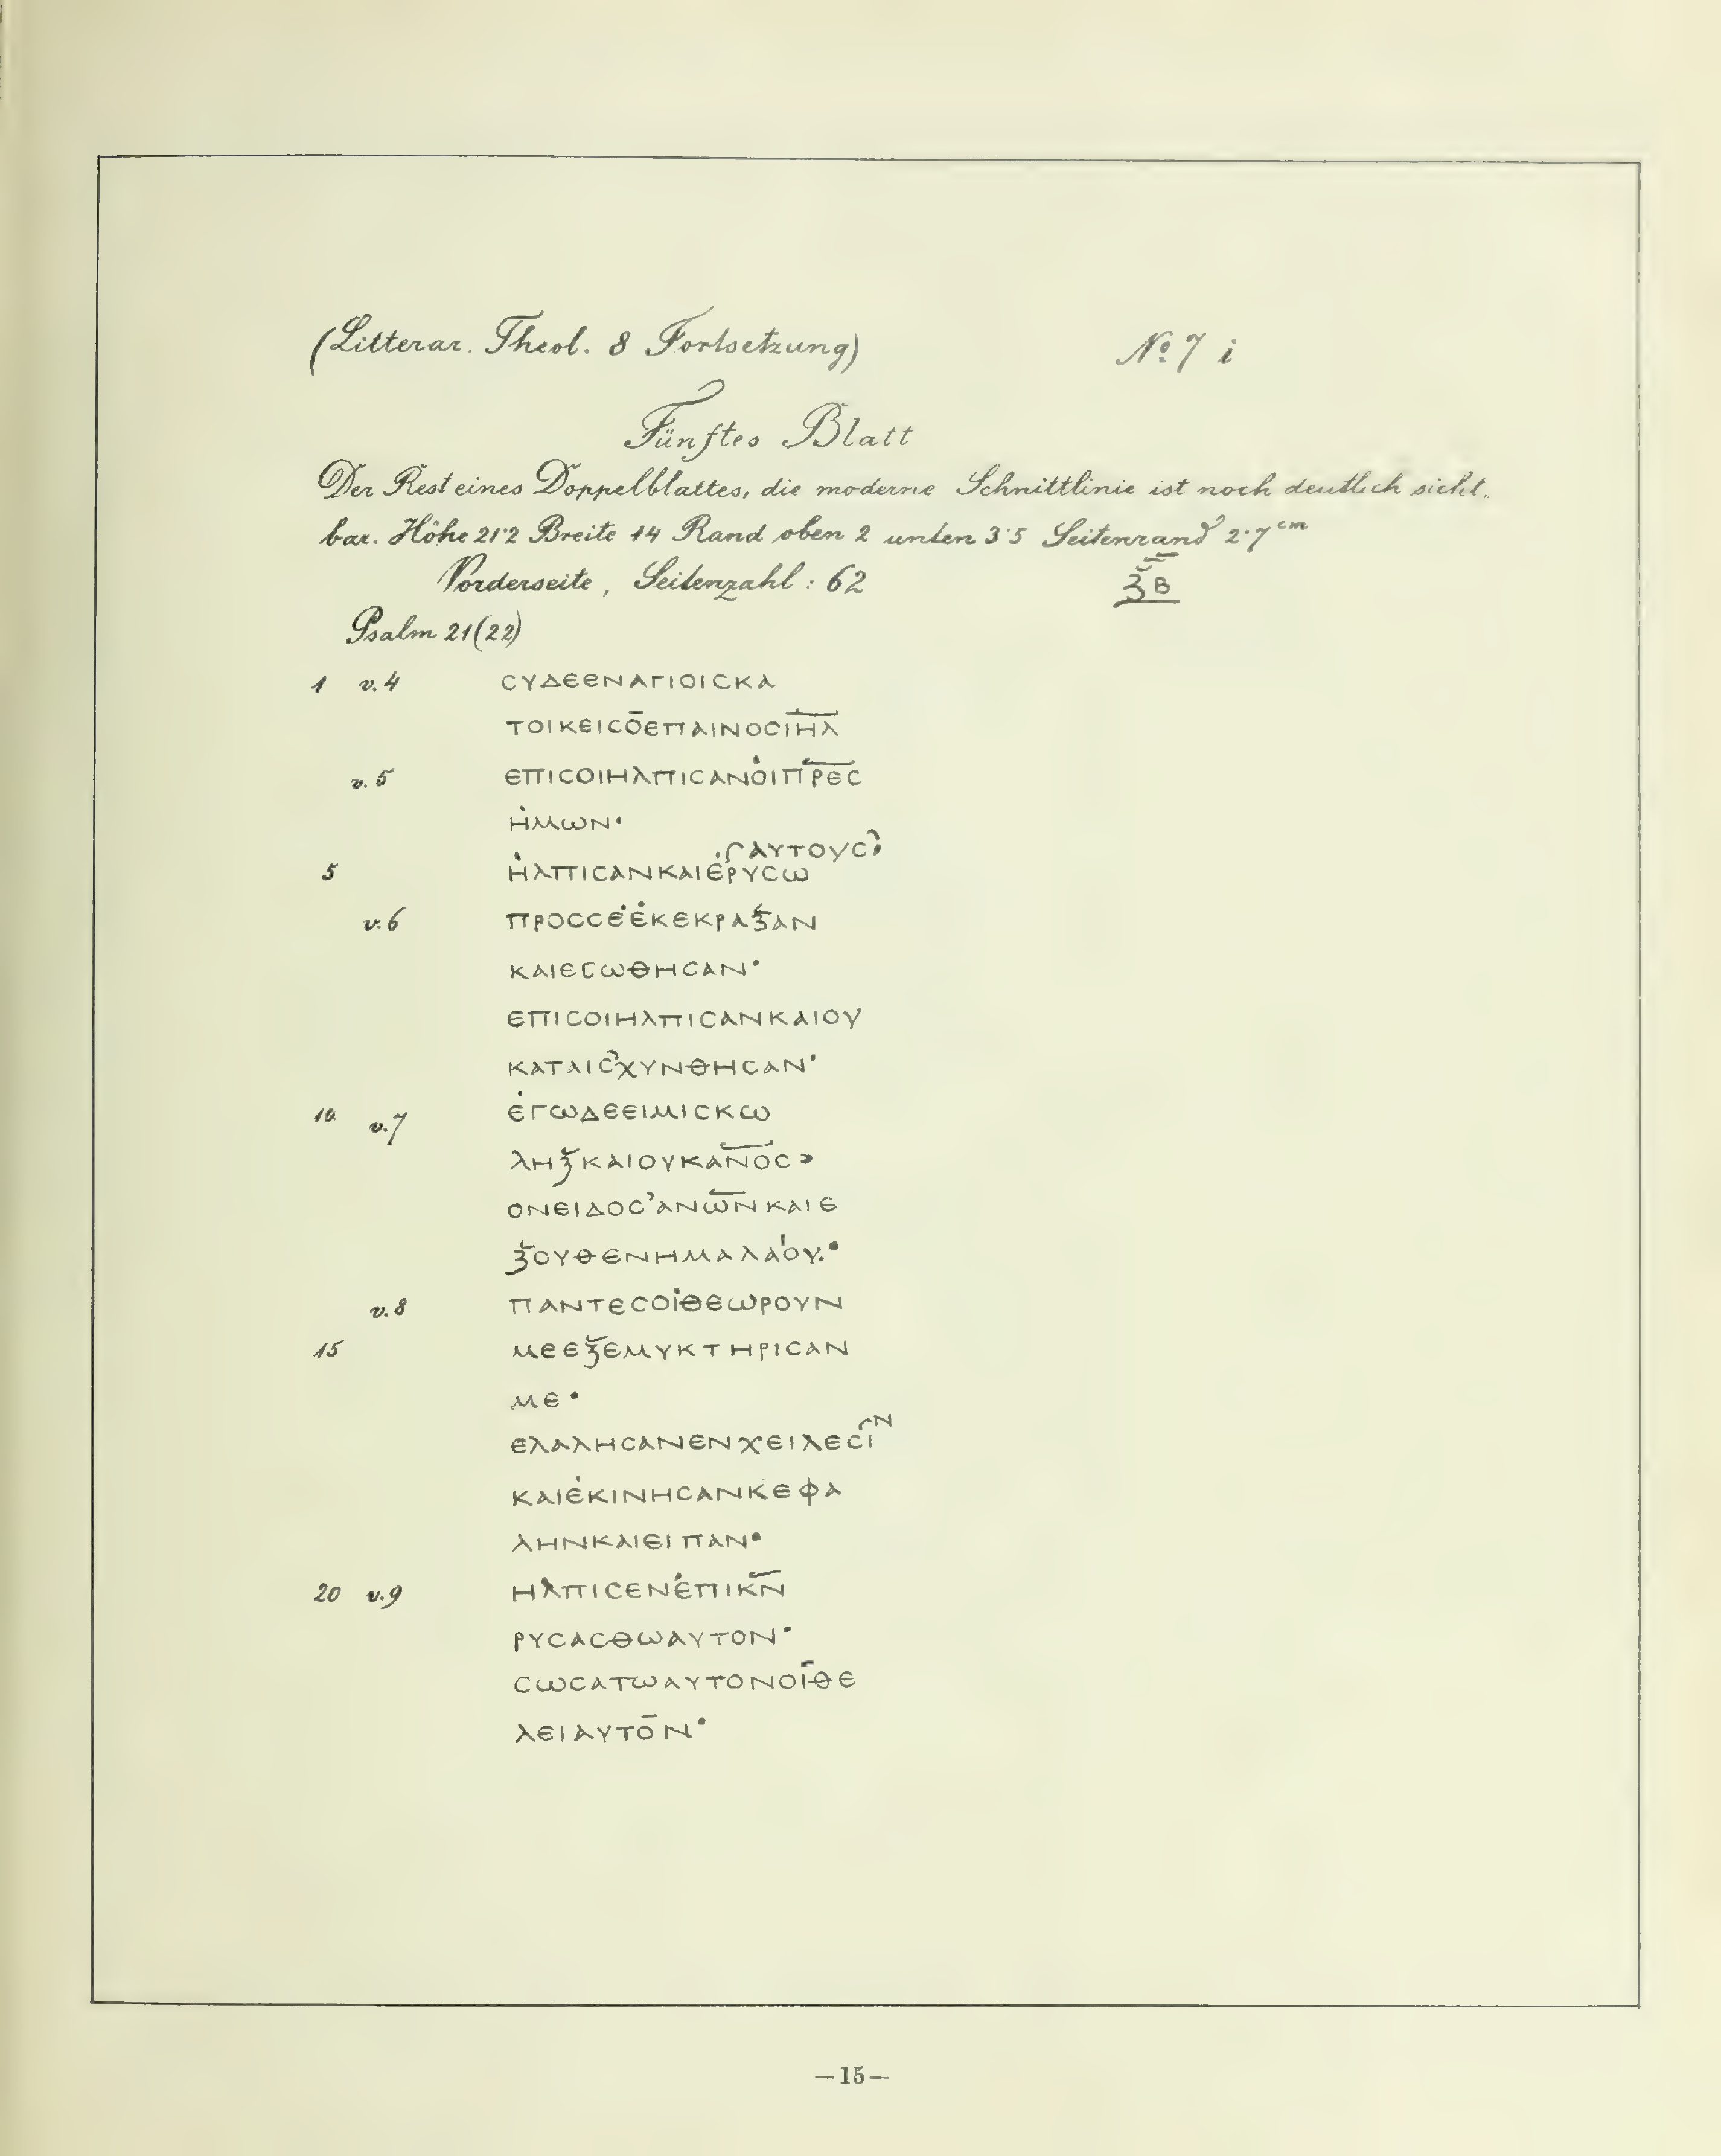 (Litterar. Theol. 8 Fortsetzung) Nº 7 i
Fünftes Blatt
Der Rest eines Doppelblattes, die moderne Schnittlinie ist noch deutlich sicht-
bar. Höhe 21·2 Breite 14 Rand oben 2 unten 3·5 Seitenrand 2·7 cm
Vorderseite, Seitenzahl: 62 ξ̅Β̅
Psalm 21(22)
1 v.4 ϹΥΔΕΕΝΑΓΙΟΙϹΚΑ
ΤΟΙΚΕΙϹΟ̄ΕΠΑΙΝΟϹΙ̅Η̅Λ̅
v.5 ΕΠΙϹΟΙΗΛΠΙϹΑΝΟ̇ΙΠ̅Ρ̅Ε̅Ϲ
Η̇ΜΩΝ·
⸌ΑΥΤΟΥϹ⸍
5 Η̇ΛΠΙϹΑΝΚΑΙΕ̇ΡΥϹΩ
v.6 ΠΡΟϹϹΕ̇Ε̇ΚΕΚΡΑΞΑΝ
ΚΑΙΕϹΩΘΗϹΑΝ·
ΕΠΙϹΟΙΗΛΠΙϹΑΝΚΑΙΟΥ
ΚΑΤΑΙϹ̓ΧΥΝΘΗϹΑΝ·
10 v.7 Ε̇ΓΩΔΕΕΙΜΙϹΚΩ
ΛΗΞΚΑΙΟΥΚΑ̅Ν̅Ο̅Ϲ ›
ΟΝΕΙΔΟϹ’ΑΝΩ̅Ν̅ΚΑΙΕ
ΞΟΥΘΕΝΗΜΑΛΑ'ΟΥ.·
v.8 ΠΑΝΤΕϹΟΙ̇ΘΕΩΡΟΥΝ
15 ΜΕΕΞΕΜΥΚΤΗΡΙϹΑΝ
ΜΕ·
ΕΛΑΛΗϹΑΝΕΝΧΕΙΛΕϹΙ⸌Ν
ΚΑΙΕ̇ΚΙΝΗϹΑΝΚΕΦΑ
ΛΗΝΚΑΙΕΙΠΑΝ·
20 v.9 ΗΛΠΙϹΕΝΕ̇ΠΙΚ̅Ν̅
ΡΥϹΑϹΘΩΑΥΤΟΝ·
ϹΩϹΑΤΩΑΥΤΟΝΟῙΘΕ
ΛΕΙΑΥΤΟ̄Ν·
—15—